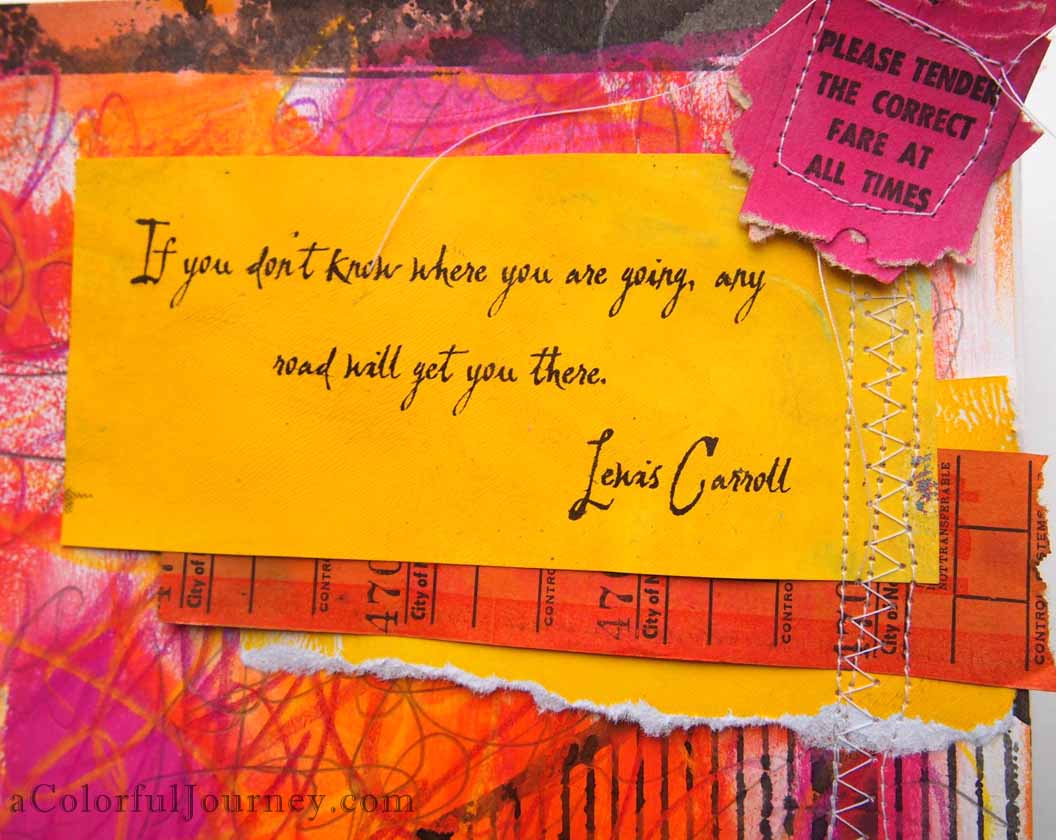 PLEASE TENDER
THE CORRECT
FARE AT
ALL TIMES
If you don't know where you are going, any
road will get you there.
Lewis Carroll
NOT TRANSFERABLE
City of
CONTRO
470
City of
CONTRO
470
City of N
CONTRO
470
City of No
CONTRO
STEMS
aColorfulJourney.com